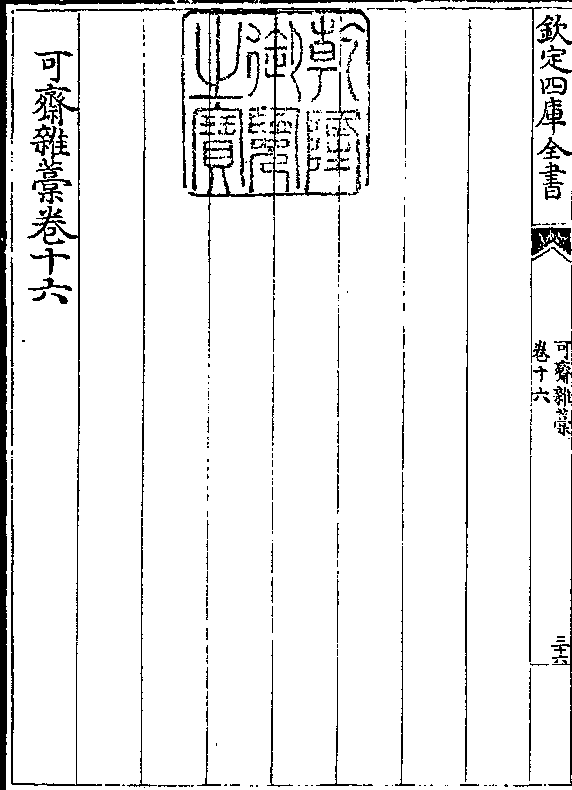 欽定四庫全書
可齋雜藁
卷十六
三十六
乾隆
御覽
之寶
可齋雜藁卷十六